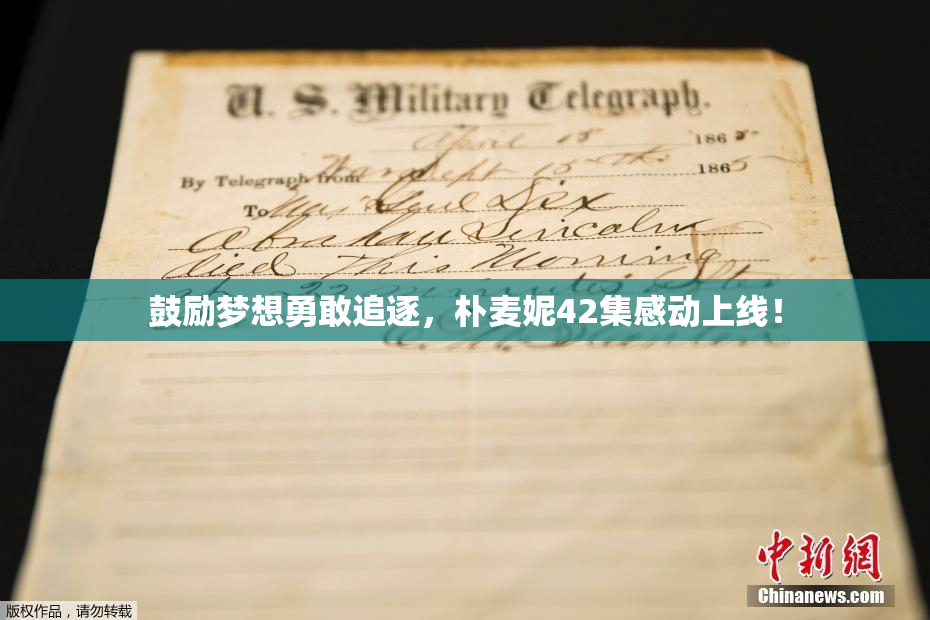 U. S. Military Telegraph.
April 15 1865
By Telegraph from War Dept 15th 1865
To Maj Genl Dix
Abraham Lincoln
died This Morning
at 22 minutes after
鼓励梦想勇敢追逐，朴麦妮42集感动上线！
E. M. Stanton
中新網
Chinanews.com
版权作品，请勿转载